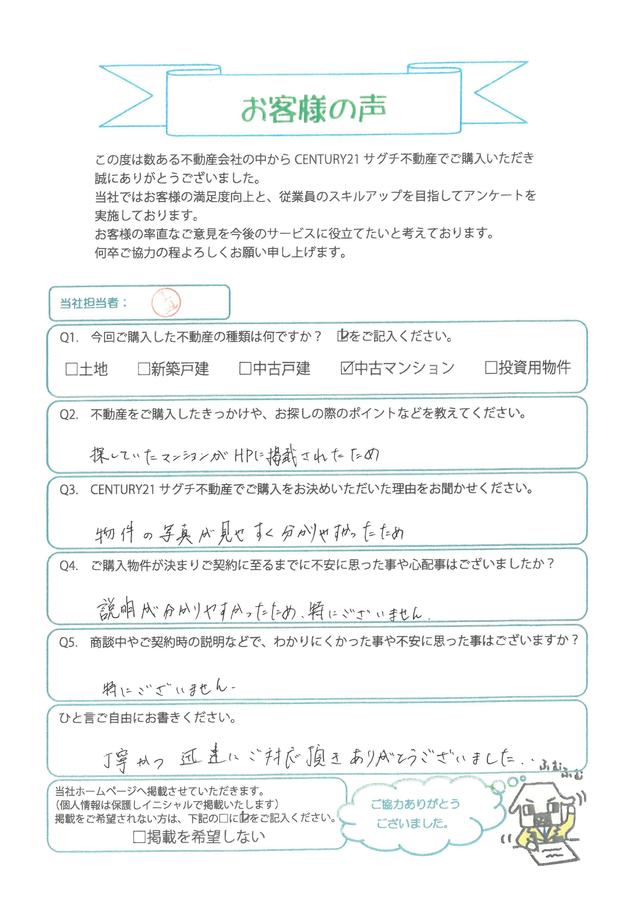 お客様の声
この度は数ある不動産会社の中から CENTURY21 サグチ不動産でご購入いただき
誠にありがとうございました。
当社ではお客様の満足度向上と、従業員のスキルアップを目指してアンケートを
実施しております。
お客様の率直なご意見を今後のサービスに役立てたいと考えております。
何卒ご協力の程よろしくお願い申し上げます。
当社担当者：
Q1. 今回ご購入した不動産の種類は何ですか？ ☑をご記入ください。
□土地 □新築戸建 □中古戸建 ☑中古マンション □投資用物件
Q2. 不動産をご購入したきっかけや、お探しの際のポイントなどを教えてください。
探していたマンションがHPに掲載されたため
Q3. CENTURY21 サグチ不動産でご購入をお決めいただいた理由をお聞かせください。
物件の写真が見やすく分かりやすかったため
Q4. ご購入物件が決まりご契約に至るまでに不安に思った事や心配事はございましたか？
説明が分かりやすかったため、特にございません.
Q5. 商談中やご契約時の説明などで、わかりにくかった事や不安に思った事はございますか？
特にございません.
ひと言ご自由にお書きください。
丁寧かつ 迅速にご対応頂きありがとうございました..
当社ホームページへ掲載させていただきます。
（個人情報は保護しイニシャルで掲載いたします）
掲載をご希望されない方は、下記の□に☑をご記入ください。
□掲載を希望しない
ご協力ありがとう
ございました。
ふむっ
ふむ